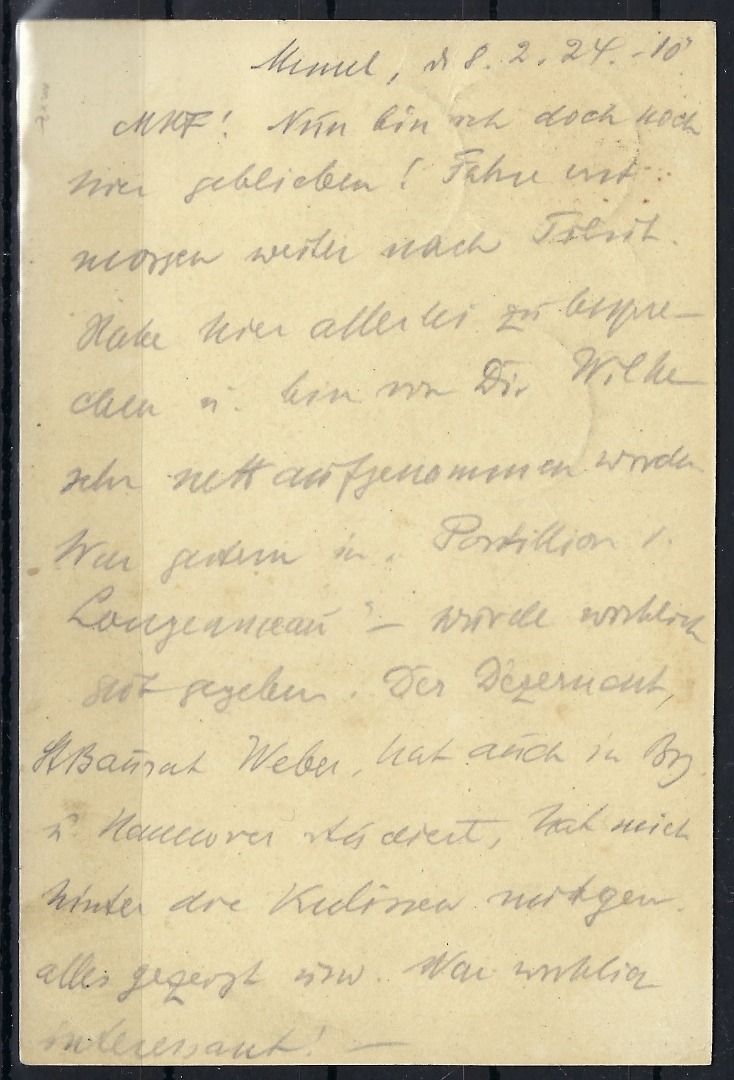 Memel, d 8. 2. 24. - 10°
MKF! Nun bin ich doch noch
hier geblieben! Fahre erst
morgen weiter nach Tilsit.
Habe hier allerlei zu bespre-
chen u. bin von Dir. Wilke
sehr nett aufgenommen worden
War gestern in „Postillion v.
Lonjumeau" – wurde wirklich
gut gegeben. Der Dezernent,
StBaurat Weber, hat auch in Brg.
u. Hannover studiert, hat mich
hinter die Kulissen mitgen.
alles gezeigt usw. War wirklich
interessant! –